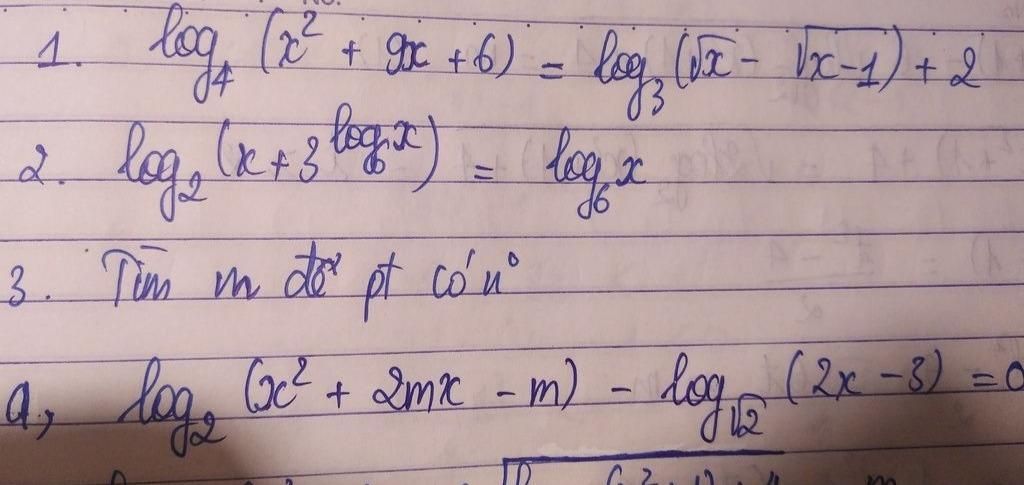 1. log₄(x² + 9x + 6) = log₃(√x - √x-1) + 2
2. log₂(x + 3^log₆x) = log₆x
3. Tìm m để pt có n°
a, log₂(x² + 2mx - m) - log_√2(2x - 3) = 0